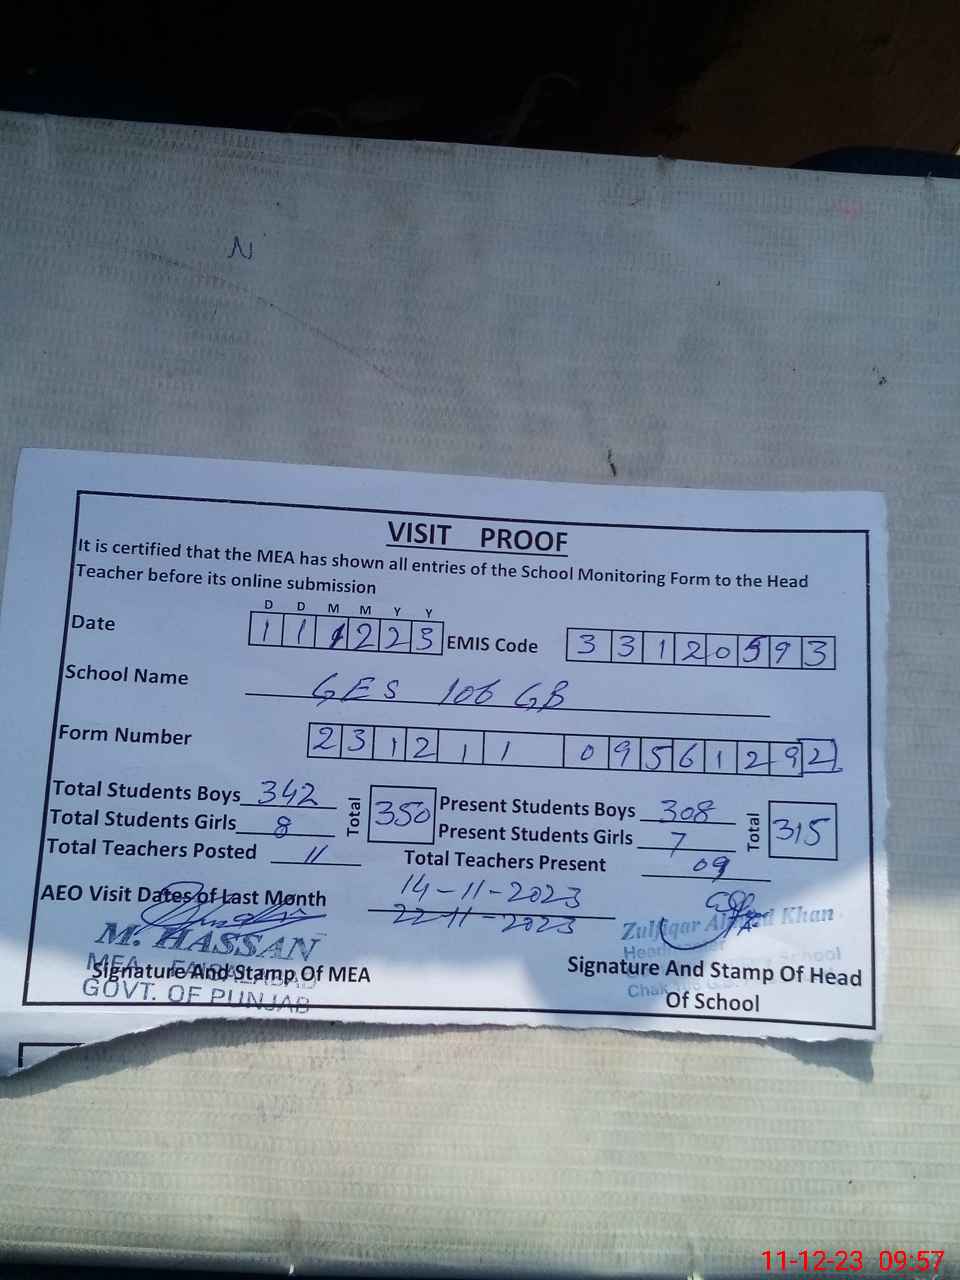 N
VISIT PROOF
It is certified that the MEA has shown all entries of the School Monitoring Form to the Head
Teacher before its online submission
D D M M Y Y
Date 1 1 1 2 2 3 EMIS Code 3 3 1 2 0 5 9 3
School Name GES 106 GB
Form Number 2 3 1 2 1 1 1 0 9 5 6 1 2 9 2
Total Students Boys 342 Total 350 Present Students Boys 308 Total 315
Total Students Girls 8 Present Students Girls 7
Total Teachers Posted 11 Total Teachers Present 09
AEO Visit Dates of Last Month 14-11-2023
22-11-2023
M. HASSAN
MEA FAISALABAD
Signature And Stamp Of MEA
GOVT. OF PUNJAB
Zulfiqar Khan
School
Chak
Signature And Stamp Of Head
Of School
11-12-23 09:57